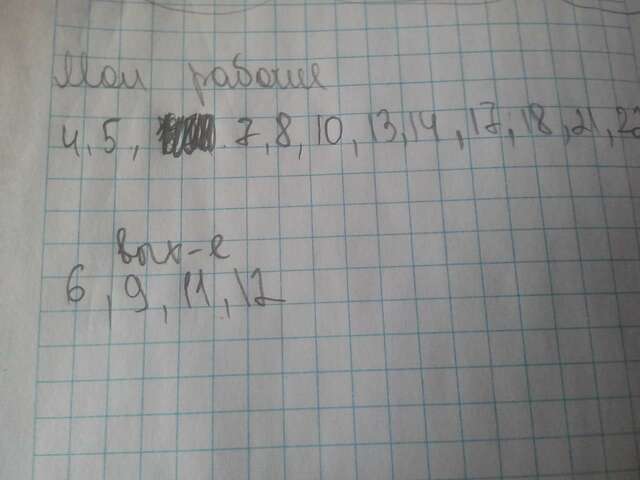 Мои рабочие
4, 5, 7, 8, 10, 13, 14, 17, 18, 21, 22
вых-е
6, 9, 11, 12